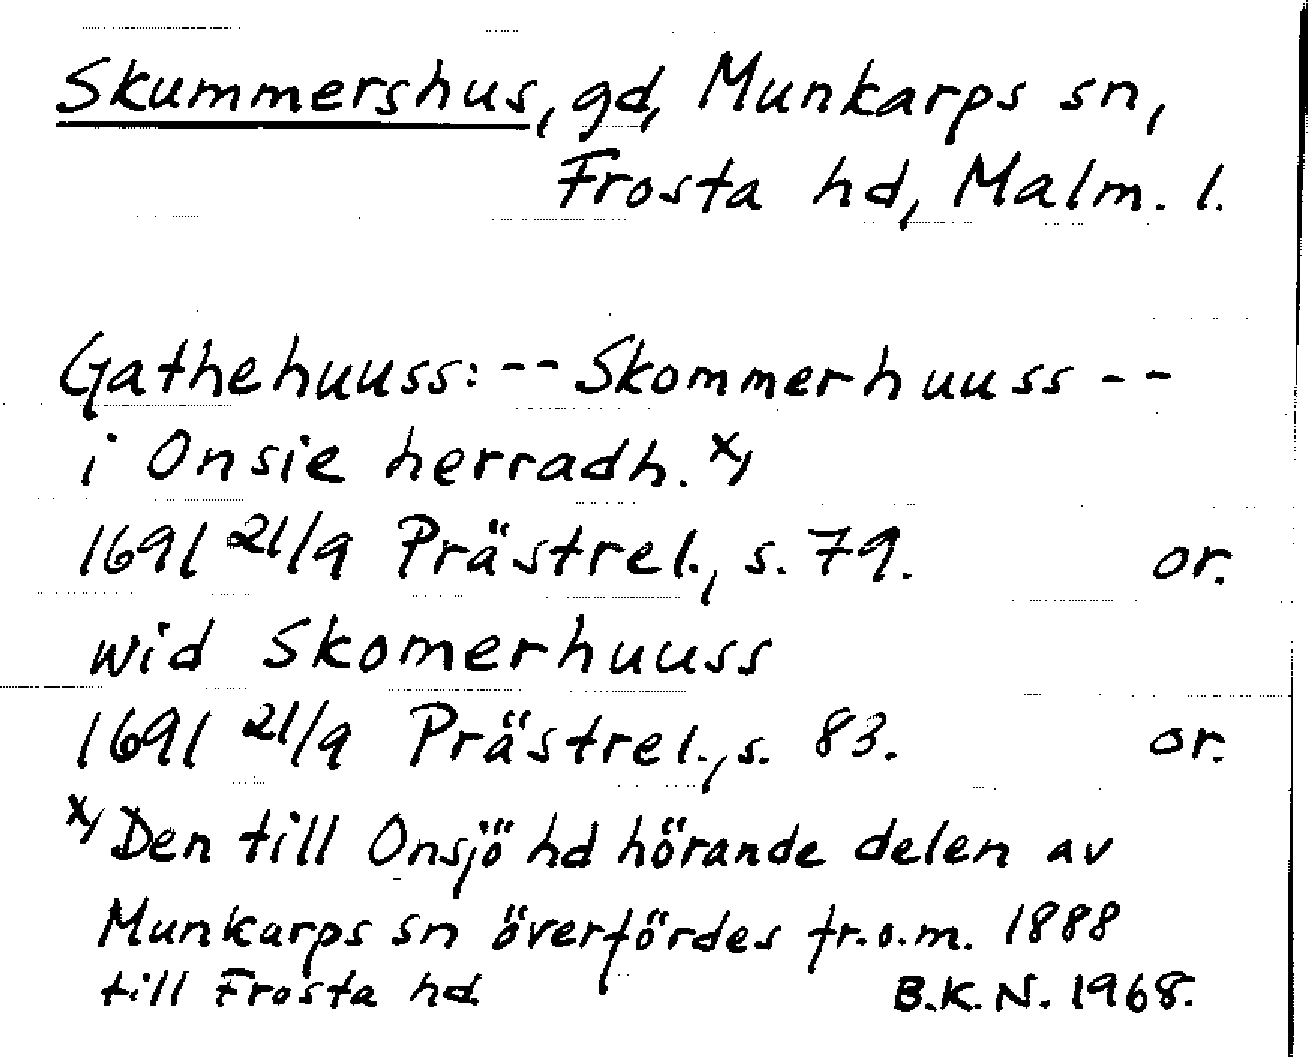 Skummershus, gd, Munkarps sn,
Frosta hd, Malm. l.
Gathehuuss: -- Skommerhuuss --
i Onsie herradh. x)
1691 21/9 Prästrel., s. 79. or.
wid Skomerhuuss
1691 21/9 Prästrel., s. 83. or.
x) Den till Onsjö hd hörande delen av
Munkarps sn överfördes fr.o.m. 1888
till Frosta hd B.K.N. 1968.